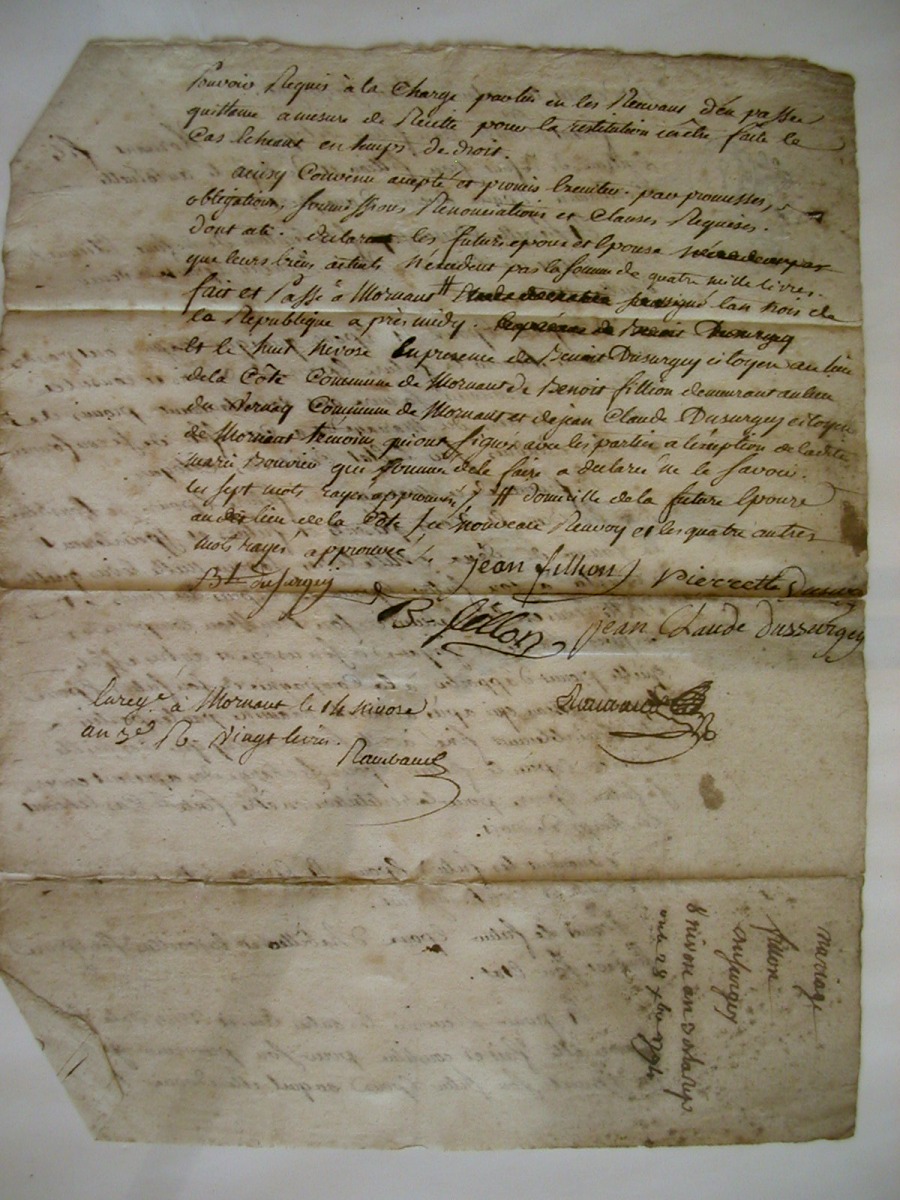 Pouvoir Requis à la Charge par lui en les Recevant d'en passer
quittance a mesure de Reütte pour la restitution en être faite le
Cas Echeant en temps de droit.
ainsy Convenu accepté et promis Executer par promesses,
obligations, soumissions Renonciations et Clauses Requises.
Dont acte. Declarant les futurs epoux et Epouse
que leurs biens actuels n'excedent pas la somme de quatre mille livres.
fait et Passé à Mornant # l'an trois de
la République après midy. la présence de Benoit Dusurgey
Et le huit Nivose En presence de Benoit Dusurgey citoyen au lieu
de la Côte Commune de Mornant de Benoit fillion demeurant au lieu
du Vernay Commune de Mornant et de jean Claude Dusurgey citoyen
de Mornant temoins qui ont signé avec les parties a l'exception de ladite
marie Bouvier qui sommée de le faire a declaré ne le savoir.
les sept mots rayés approuvés # domicille de la future Epouse
au dit lieu de la Côte Le nouveau Renvoy et les quatre autres
mots rayés approuvé
jean fillion Pierrette Dusurgey
Bt dusurgey
B fillon jean Claude Dussurgey
Enregé à Mornant le 14 nivose
an 3e R. vingt livres.
Raimbaud
mariage
fillion
dusurgey
8 nivose an 3
28 xbre 1794